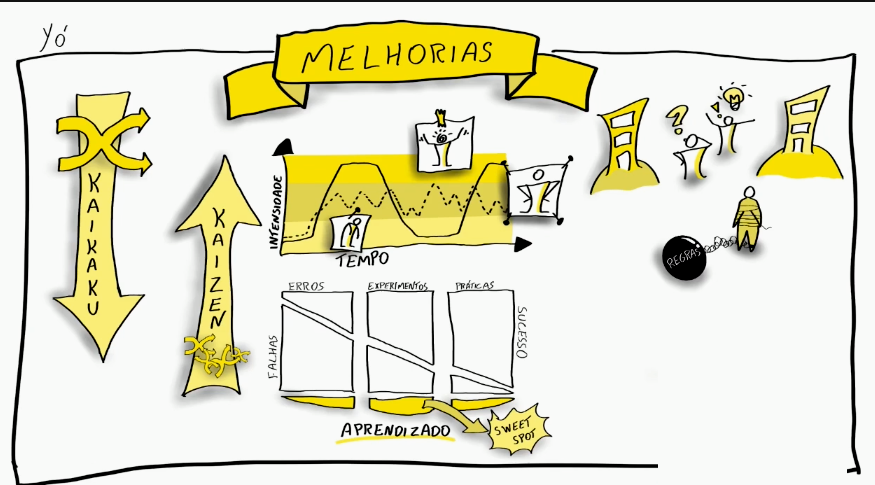 YÓ
MELHORIAS
KAIKAKU
KAIZEN
INTENSIDADE
TEMPO
?
!
REGRAS
ERROS
EXPERIMENTOS
PRÁTICAS
FALHAS
SUCESSO
APRENDIZADO
SWEET
SPOT